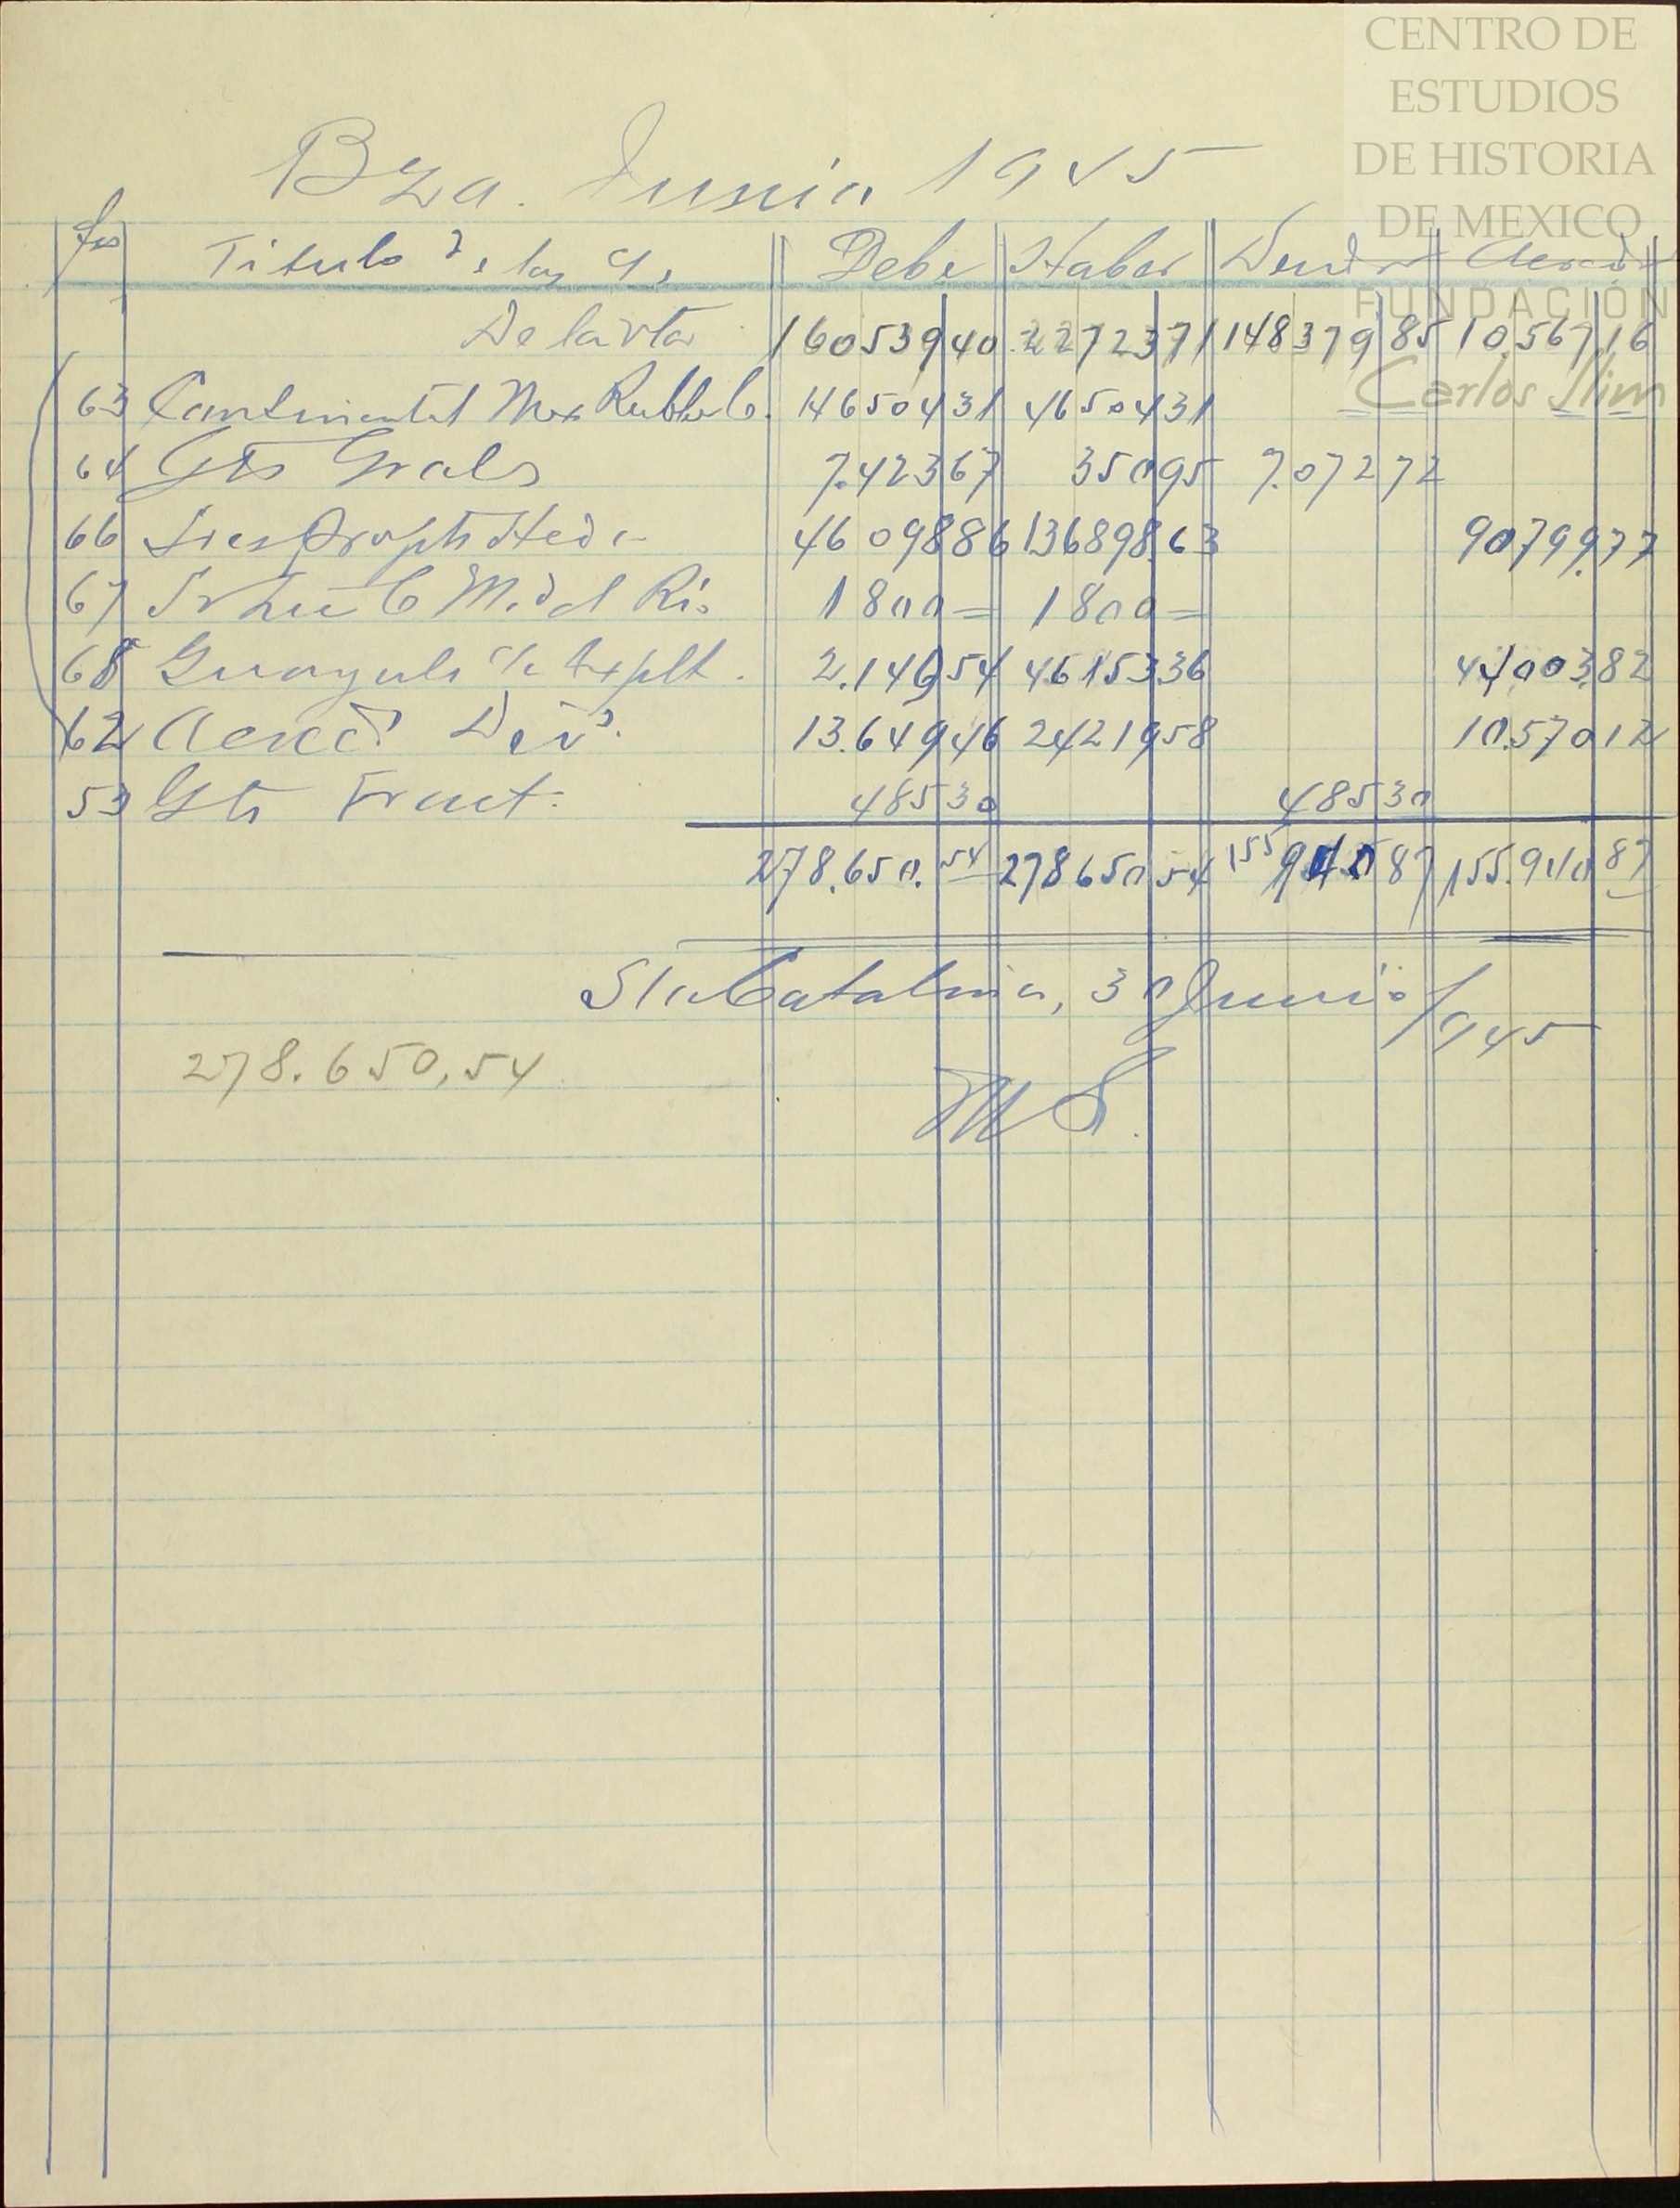 CENTRO DE
ESTUDIOS
DE HISTORIA
DE MEXICO
FUNDACIÓN
Carlos Slim
Bza. Junio 1945
fos Titulo de las Cs Debe Haber Deudor Acreedor
De la vta 160539 40 22723 71 148379 85 10.567 16
63 Continental Mex Rubber Co. 46504 31 46504 31
64 Gts Grals 7.423 67 350 95 7.072 72
66 Sres Propts Hda 46 098 86 136898.63 90799.77
67 Sr Luis C M. d l Rio 1800 = 1800 =
68 Guayule c/e Explt. 2.149 54 46153 36 44003.82
62 Acred. Div. 13.649 46 24219 58 10.570 12
53 Gts Fract. 485 30 485 30
278.650.54 278650 54 155940 87 155.940 87
Sta Catalina, 30 Junio/945
278.650,54
M S.